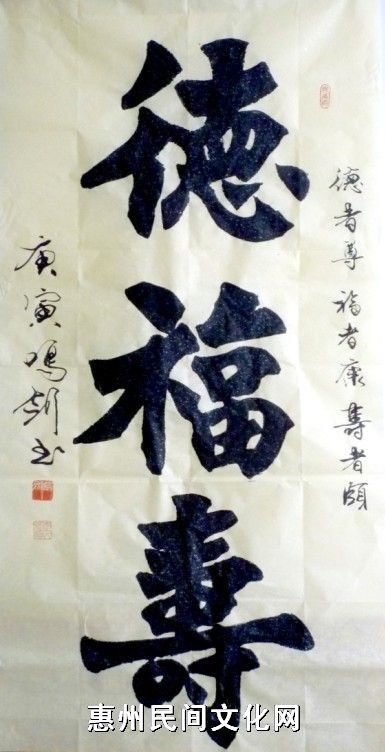 德福壽
德者尊 福者康 壽者頤
庚寅鸣剑书
惠州民间文化网